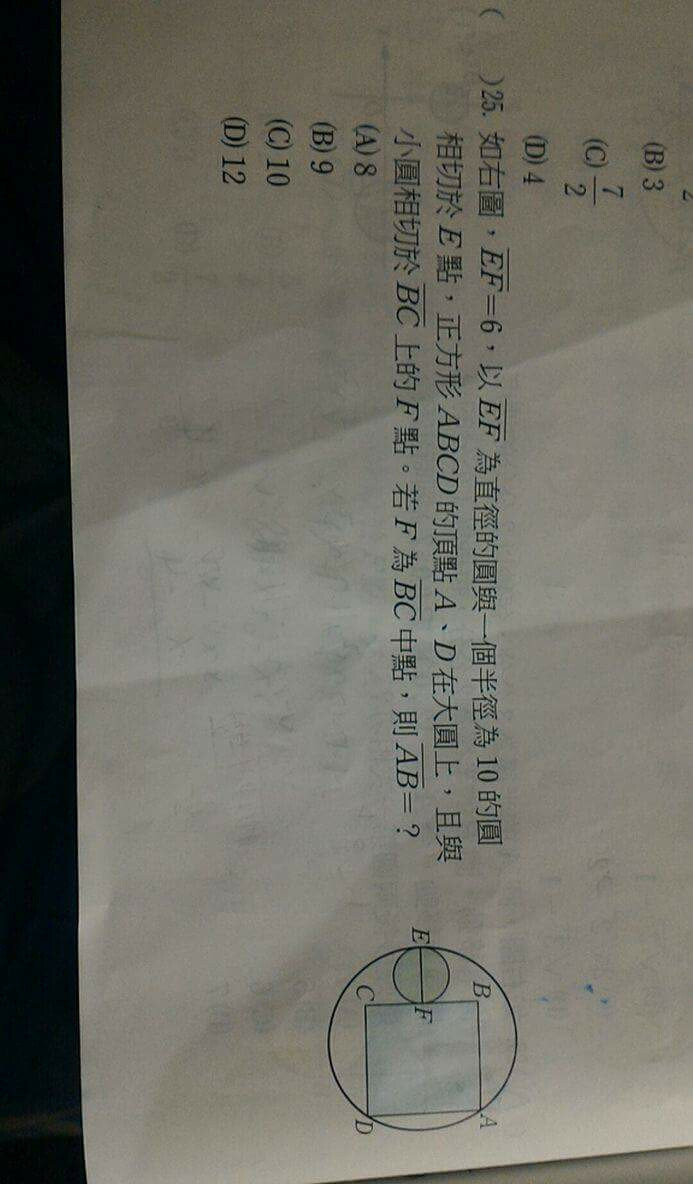 (B) 3
(C) 7/2
(D) 4
(   )25. 如右圖，EF=6，以 EF 為直徑的圓與一個半徑為 10 的圓
相切於 E 點，正方形 ABCD 的頂點 A、D 在大圓上，且與
小圓相切於 BC 上的 F 點。若 F 為 BC 中點，則 AB=？
(A) 8
(B) 9
(C) 10
(D) 12
B
A
E
F
C
D